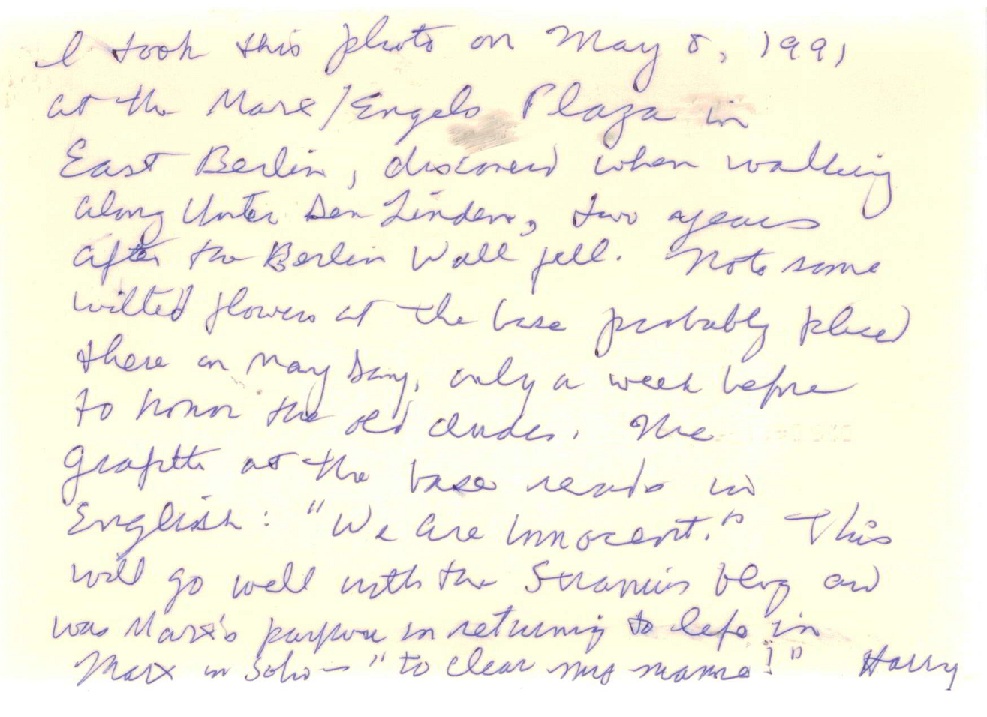 I took this photo on May 8, 1991
at the Marx/Engels Plaza in
East Berlin, discovered when walking
along Unter Den Linden, two years
after the Berlin Wall fell. Note some
wilted flowers at the base probably placed
there on May Day, only a week before
to honor the old dudes. The
graffiti at the base reads in
English: "We are innocent." This
will go well with the blog and
was Marx's purpose in returning to life in
Marx in Soho — "to clear my name!" Harry